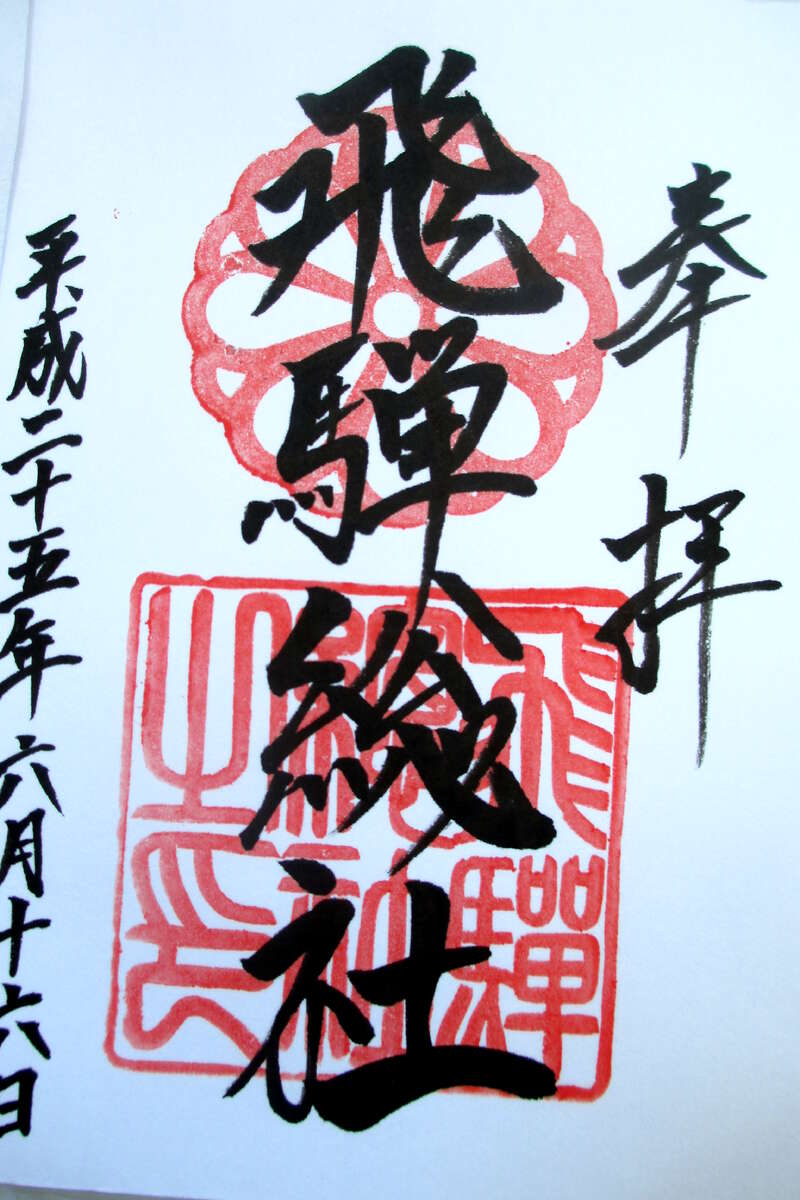 奉拝
飛騨総社
平成二十五年六月十六日
飛騨
総社
之印